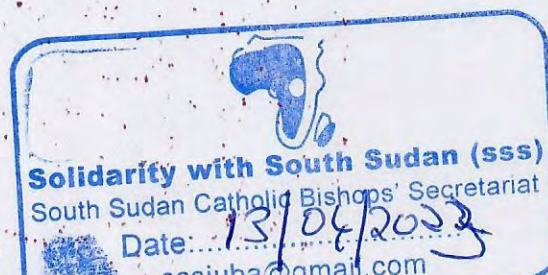 Solidarity with South Sudan (sss)
South Sudan Catholic Bishops' Secretariat
Date:.....13/04/2023
@gmail.com